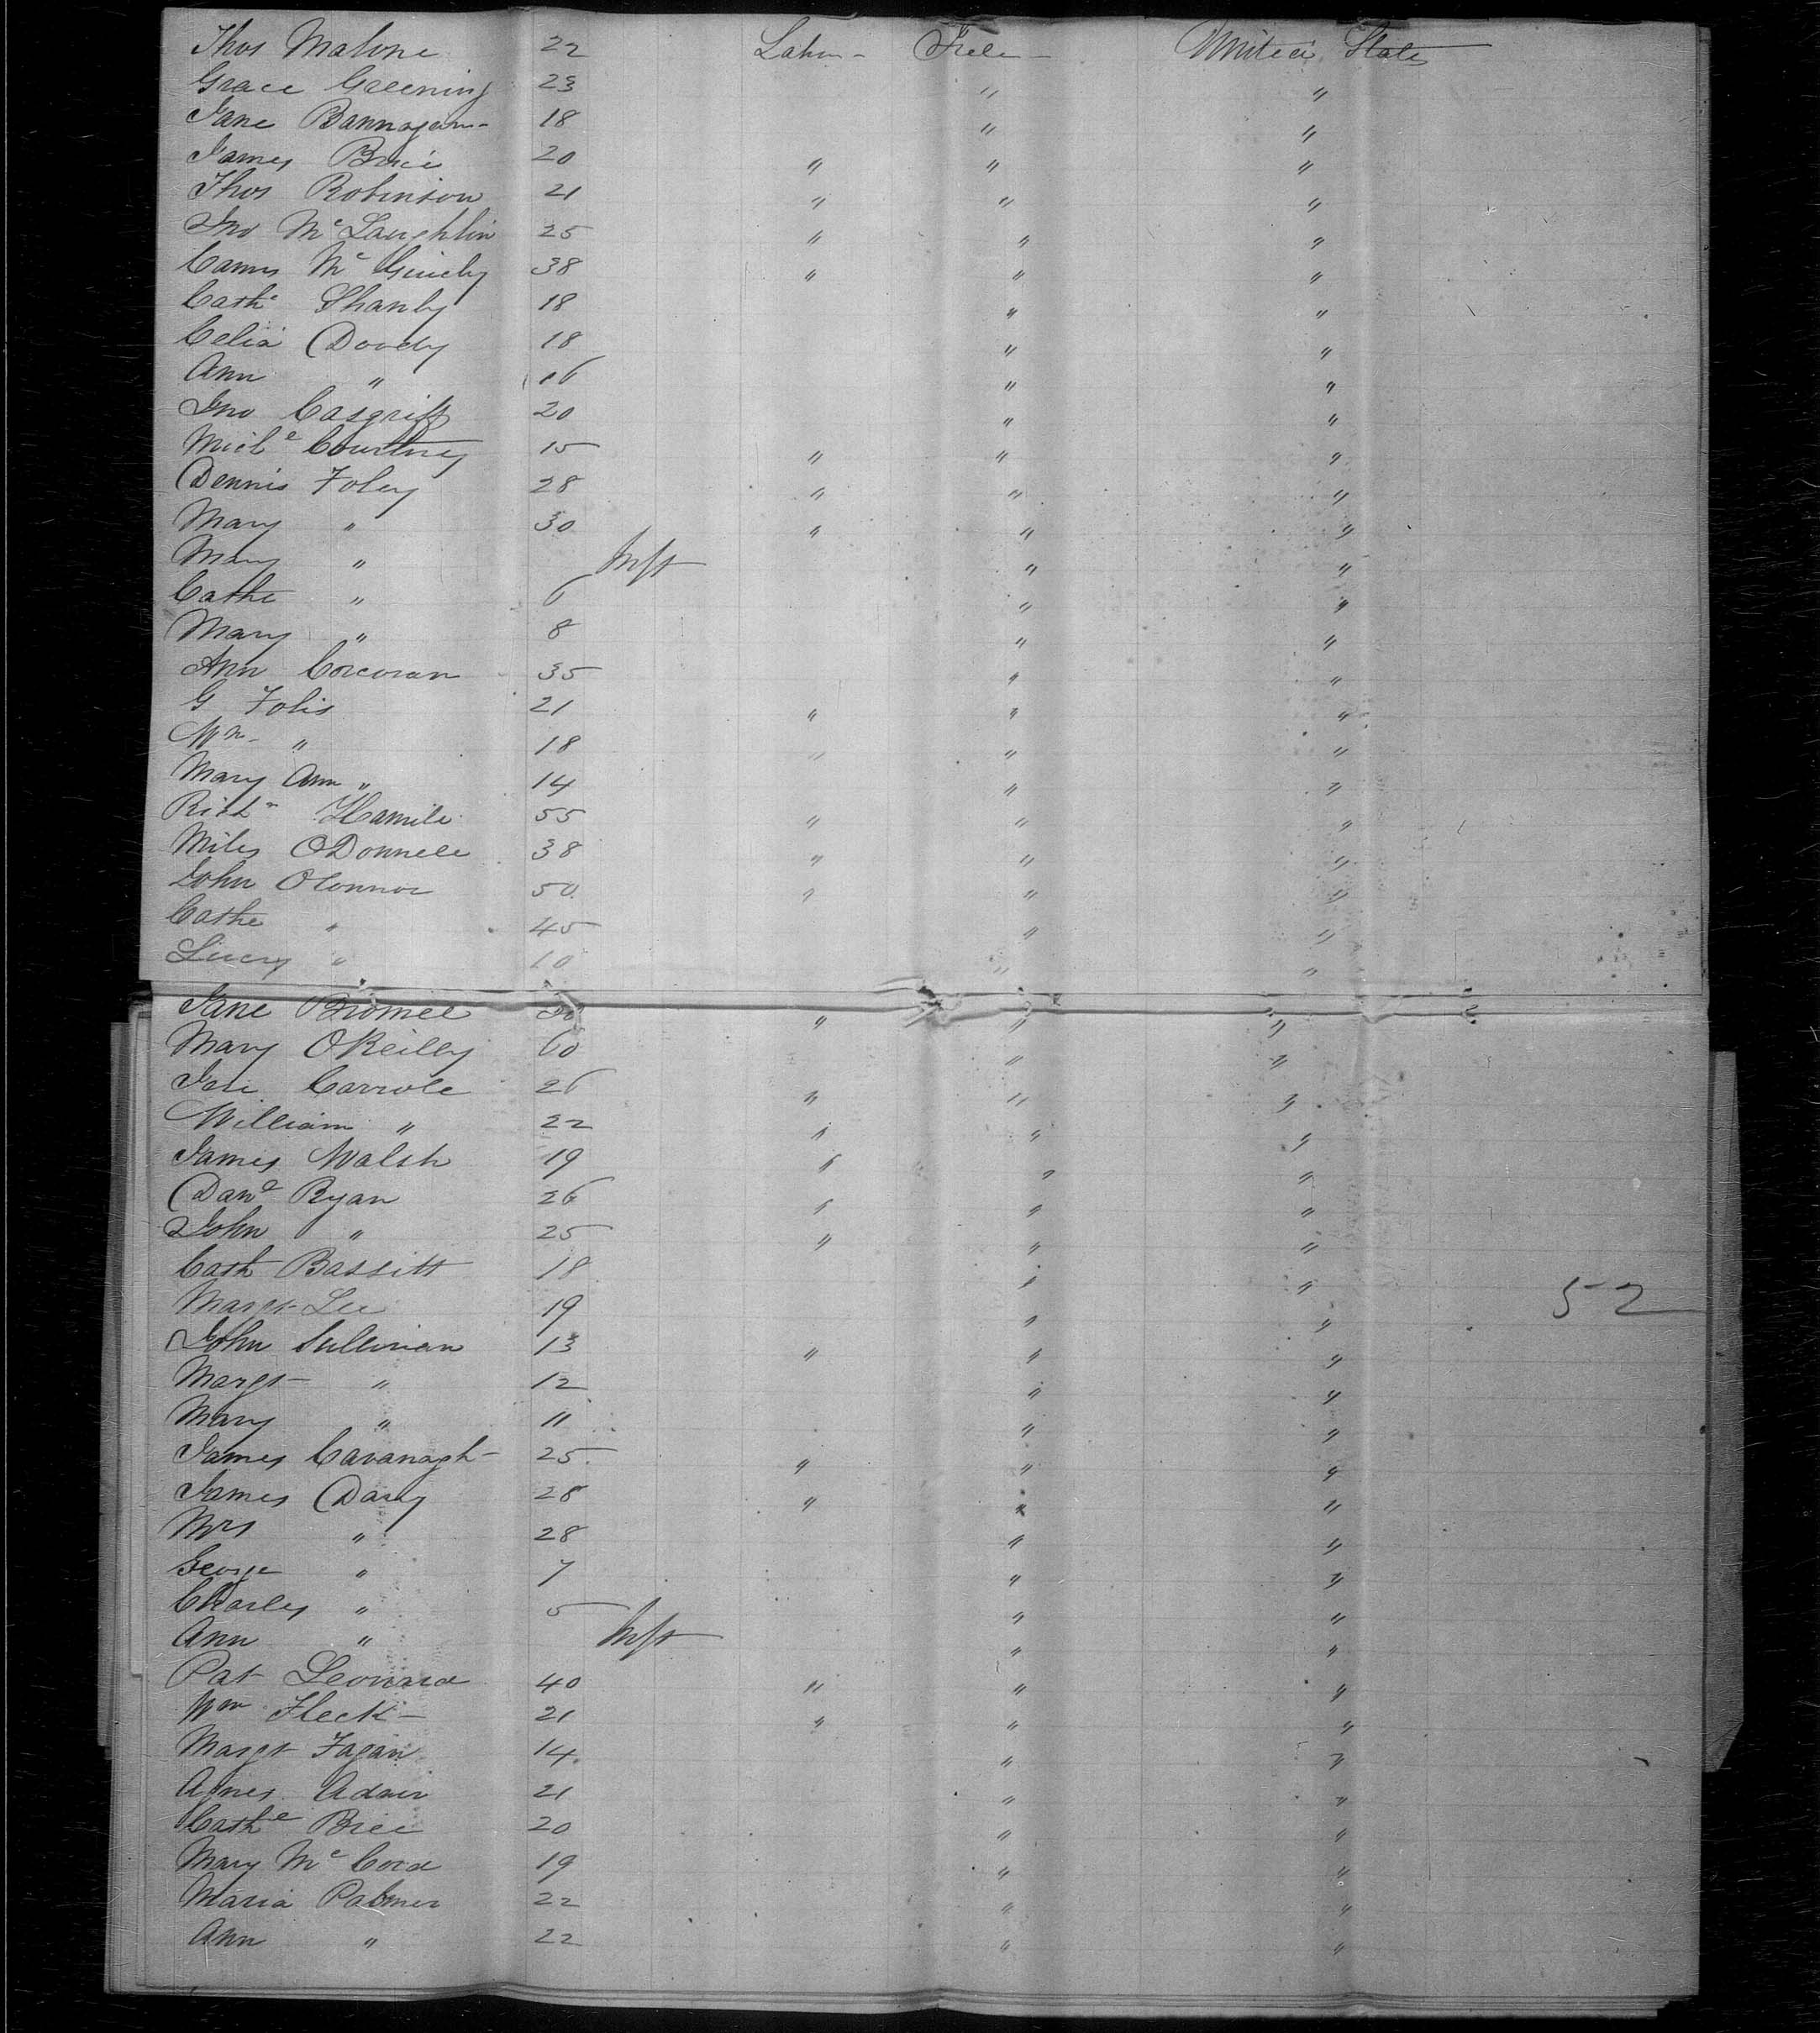 Thos Malone 22 Labor - Irela - United States
Grace Greening 23 " "
Jane Bannagan - 18 " "
James Brice 20 " " "
Thos Robinson 21 " " "
Jno Mc Laughlin 25 " " "
Mc 38 " " "
Cathe Shanly 18 " "
Celia Doody 18 " "
Ann " 16 " "
Jno Casgriff 20 " "
Michl Courtney 15 " " "
Dennis Foley 28 " " "
Mary " 30 " " "
Mary " Inft " "
Cathe " 6 " "
Mary " 8 " "
Ann Corcoran 35 " "
G Folis 21 " " "
Wm " 18 " " "
Mary Ann " 14 " "
Richd Hamill 55 " " "
Miles O'Donnell 38 " " "
John O'Connor 50 " " "
Cathe " 45 " "
Lucy " 10 " "
Jane " " "
Mary O'Reilly 60 " "
Carroll 26 " " "
William " 22 " " "
James Walsh 19 " " "
Danl Ryan 26 " " "
John " 25 " " "
Cath Bassitt 18 " "
Margt Lee 19 " " 52
John Sullivan 13 " " "
Margt " 12 " "
Mary " 11 " "
James Cavanagh - 25 " " "
James Darcy 28 " " "
Mrs " 28 " "
George " 7 " "
Charles " 5 " "
Ann " Inft " "
Pat Leonard 40 " " "
Wm Fleck - 21 " " "
Margt Fagan 14 " "
Agnes Adair 21 " "
Cathe Brice 20 " "
Mary Mc Cord 19 " "
Maria Palmer 22 " "
Ann " 22 " "